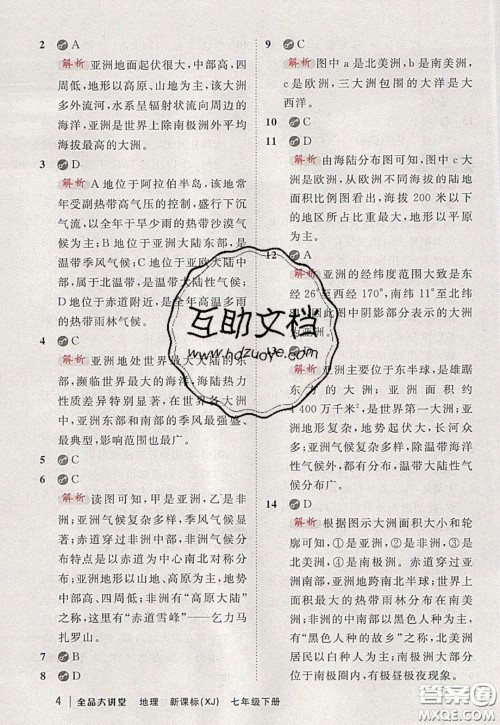 2 A
解析 亚洲地面起伏很大，中部高，四
周低，地形以高原、山地为主；有许
多外流河，水系呈辐射状流向周边的
海洋，亚洲是世界上除南极洲外平均
海拔最高的大洲。
3 D
解析 A地位于阿拉伯半岛，该地常
年受副热带高气压的控制，盛行下沉
气流，以全年干旱少雨的热带沙漠气
候为主；B地位于亚洲大陆东部，是
温带季风气候；C地位于亚欧大陆中
部，是温带大陆性气候；D地位于
亚洲大陆的赤道附近，是全年高温多雨
的热带雨林气候。
4 C
解析 亚洲地处世界最大大陆的东
部，濒临世界最大的海洋，海陆热力
性质差异特别显著，因此在世界各大洲
中，亚洲东部和南部的季风最强或最
典型，影响范围也最广。
5 C
6 C
解析 读图可知，甲是亚洲，乙是非
洲。亚洲气候复杂多样，季风气候显
著，大陆性特征显著；非洲气候分布
特点是以赤道为中心南北对称分布。
亚洲地形以山地、高原为主，地势
中部高，四周低；非洲有“高原大陆”
之称，这里有“赤道雪峰”——乞力马
扎罗山。
7 B
8 D
9 C
解析 图中a是北美洲，b是南美洲，
c是欧洲，三大洲包围的大洋是大
西洋。
10 C
11 D
解析 由海陆分布图可知，图中c大
洲是欧洲，从欧洲不同海拔的陆地
面积比例图看出，海拔200米以下
的地区所占比重最大，地形以平原
为主。
12 A
解析 亚洲的经纬度范围大致是东
经26°至西经170°，南纬11°至北纬
，此图中阴影部分表示的大洲
13
解析 亚洲主要位于东半球，是雄踞
东方的大洲；亚洲面积约
4 400万千米²，是世界第一大洲；亚
洲地形复杂，地势起伏大，长河众
多；亚洲气候复杂多样，除温带海
洋性气候外，温带大陆性气候
分布
14 D
解析 根据图示大洲面积大小和轮
廓可知，①是亚洲，②是非洲，③是
北美洲，④是南极洲。面积最小的
是南极洲，亚洲地跨南北半球；世界
面积最大的热带雨林分布在南美
洲；世界上黑色人种的故乡，有“黑
色人种的故乡”之称的是非洲。
4 全品大讲堂 地理 新课标(XJ) 七年级下册
互助文档
www.hdzuoye.com
答案圈